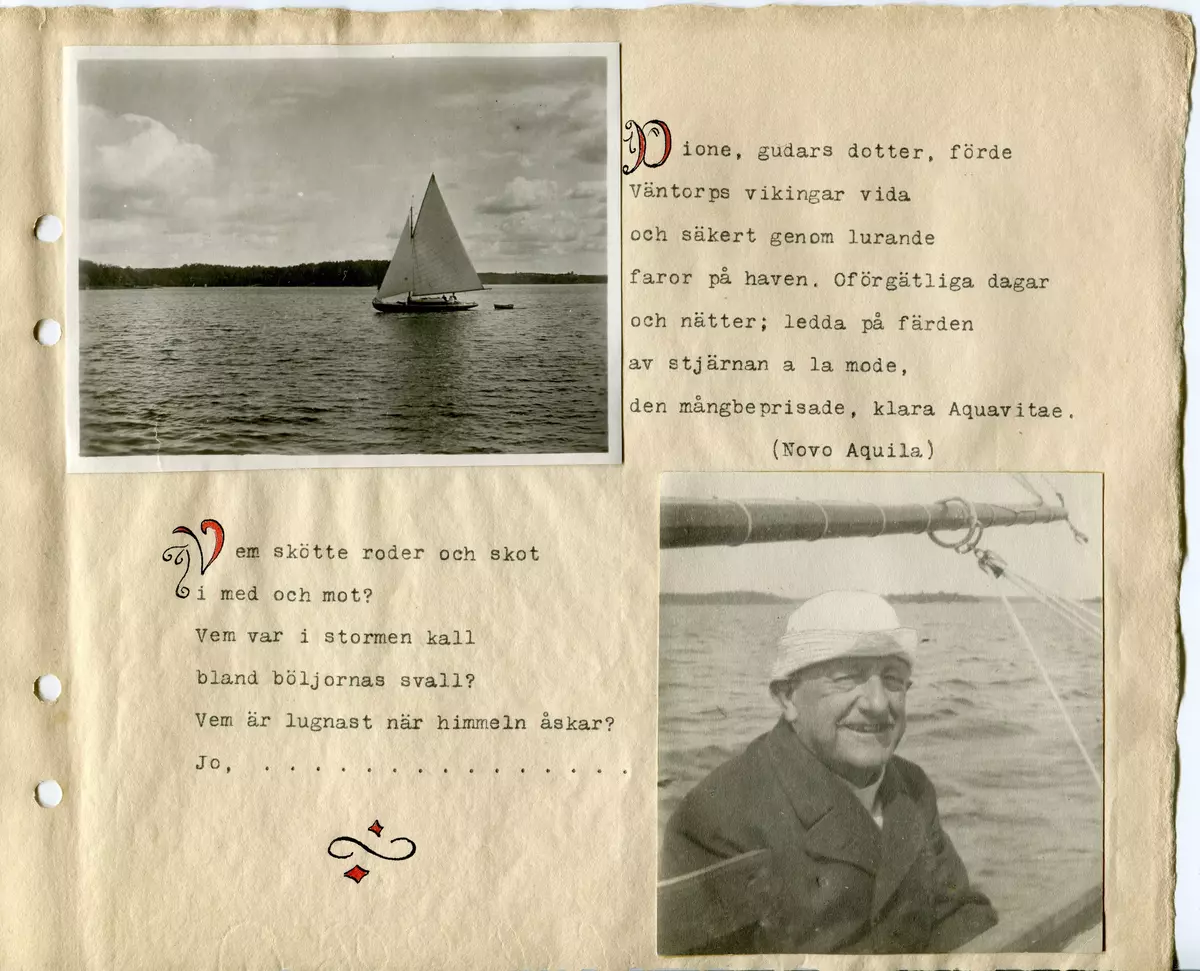 Dione, gudars dotter, förde
Väntorps vikingar vida
och säkert genom lurande
faror på haven. Oförgätliga dagar
och nätter; ledda på färden
av stjärnan a la mode,
den mångbeprisade, klara Aquavitae.
(Novo Aquila)
Vem skötte roder och skot
i med och mot?
Vem var i stormen kall
bland böljornas svall?
Vem är lugnast när himmeln åskar?
Jo, . . . . . . . . . . . . . . .